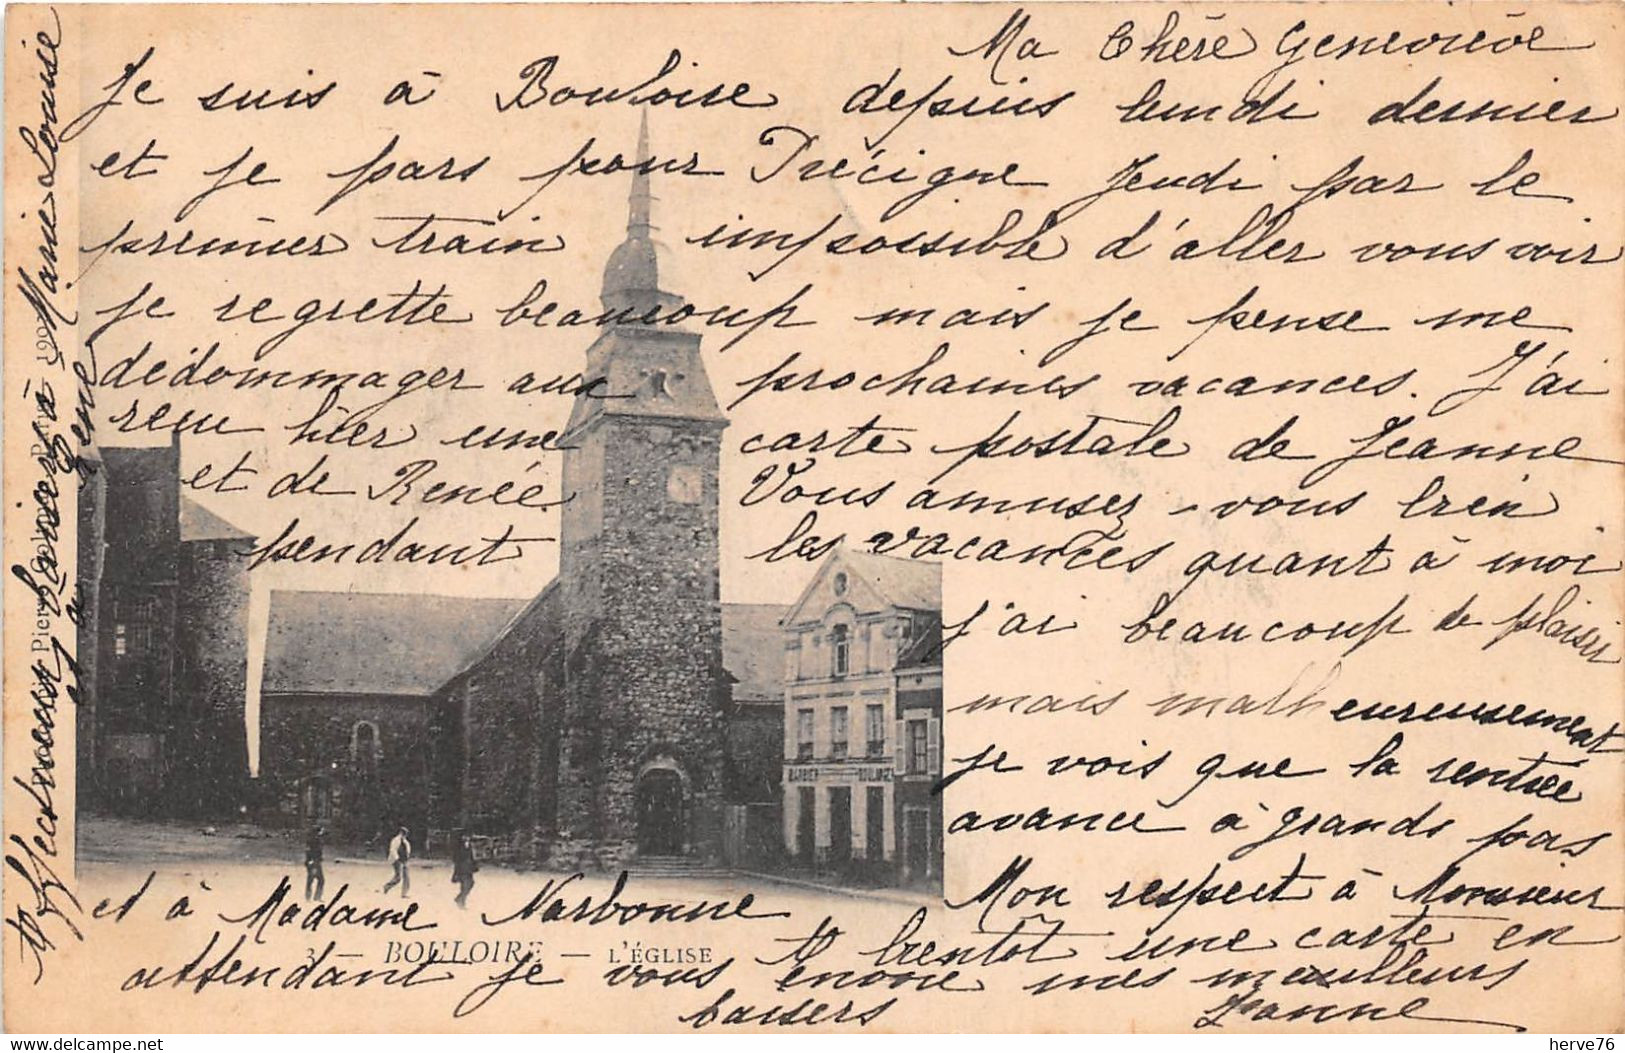 Ma Chère Geneviève
Je suis à Bouloire depuis lundi dernier
et je pars pour Précigné Jeudi par le
premier train impossible d'aller vous voir
je regrette beaucoup mais je pense me
dédommager aux prochaines vacances. J'ai
reçu hier une carte postale de Jeanne
et de Renée. Vous amusez-vous bien
pendant les vacances quant à moi
j'ai beaucoup de plaisir
mais malheureusement
je vois que la rentrée
avance à grands pas
Mon respect à Monsieur
et à Madame Narbonne
A bientôt une carte en
attendant je vous envoie mes meilleurs
baisers Jeanne
3 — BOULOIRE — L'ÉGLISE
BARBIER BOULANGER
Affectueux baisers à Marie Louise
et à René
Pierre Paris
herve76
www.delcampe.net